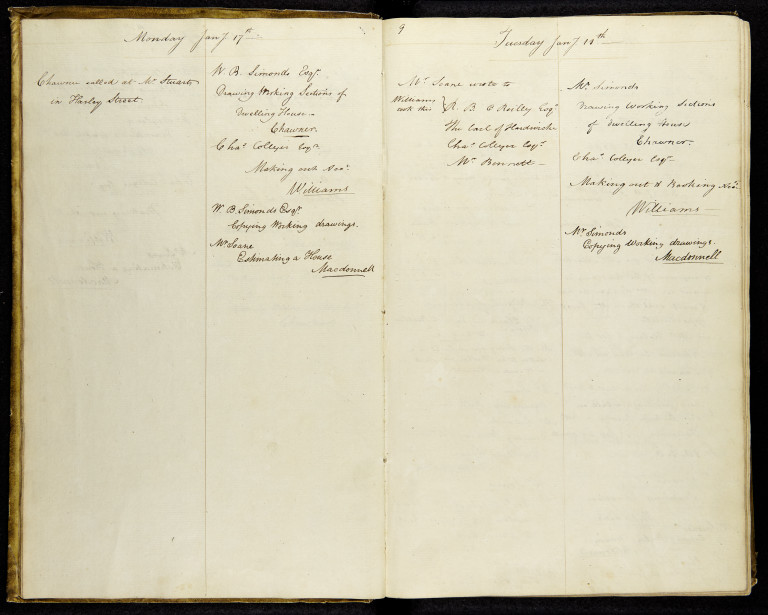 Monday Jany 17th
Chawner called at Mr Stuarts
in Harley Street.
W B. Simonds Esqr.
Drawing Working Sections of
Dwelling House —
Chawner.
Chas Collyer Esqr
Making out Acct
Williams
W. B. Simonds Esqr.
Copying Working drawings.
Mr Soane
Estimating a House
Macdonnell
9
Tuesday Jany 18th
Mr Soane wrote to
Williams
took this } R. B. O Reilly Esqr
The Earl of Hardwicke
Chas Collyer Esqr
Mr Bennett —
Mr Simonds
Drawing Working Sections
of Dwelling House
Chawner.
Chas Collyer Esqr
Making out & Booking Acct
Williams
Mr Simonds
Copying Working drawings.
Macdonnell